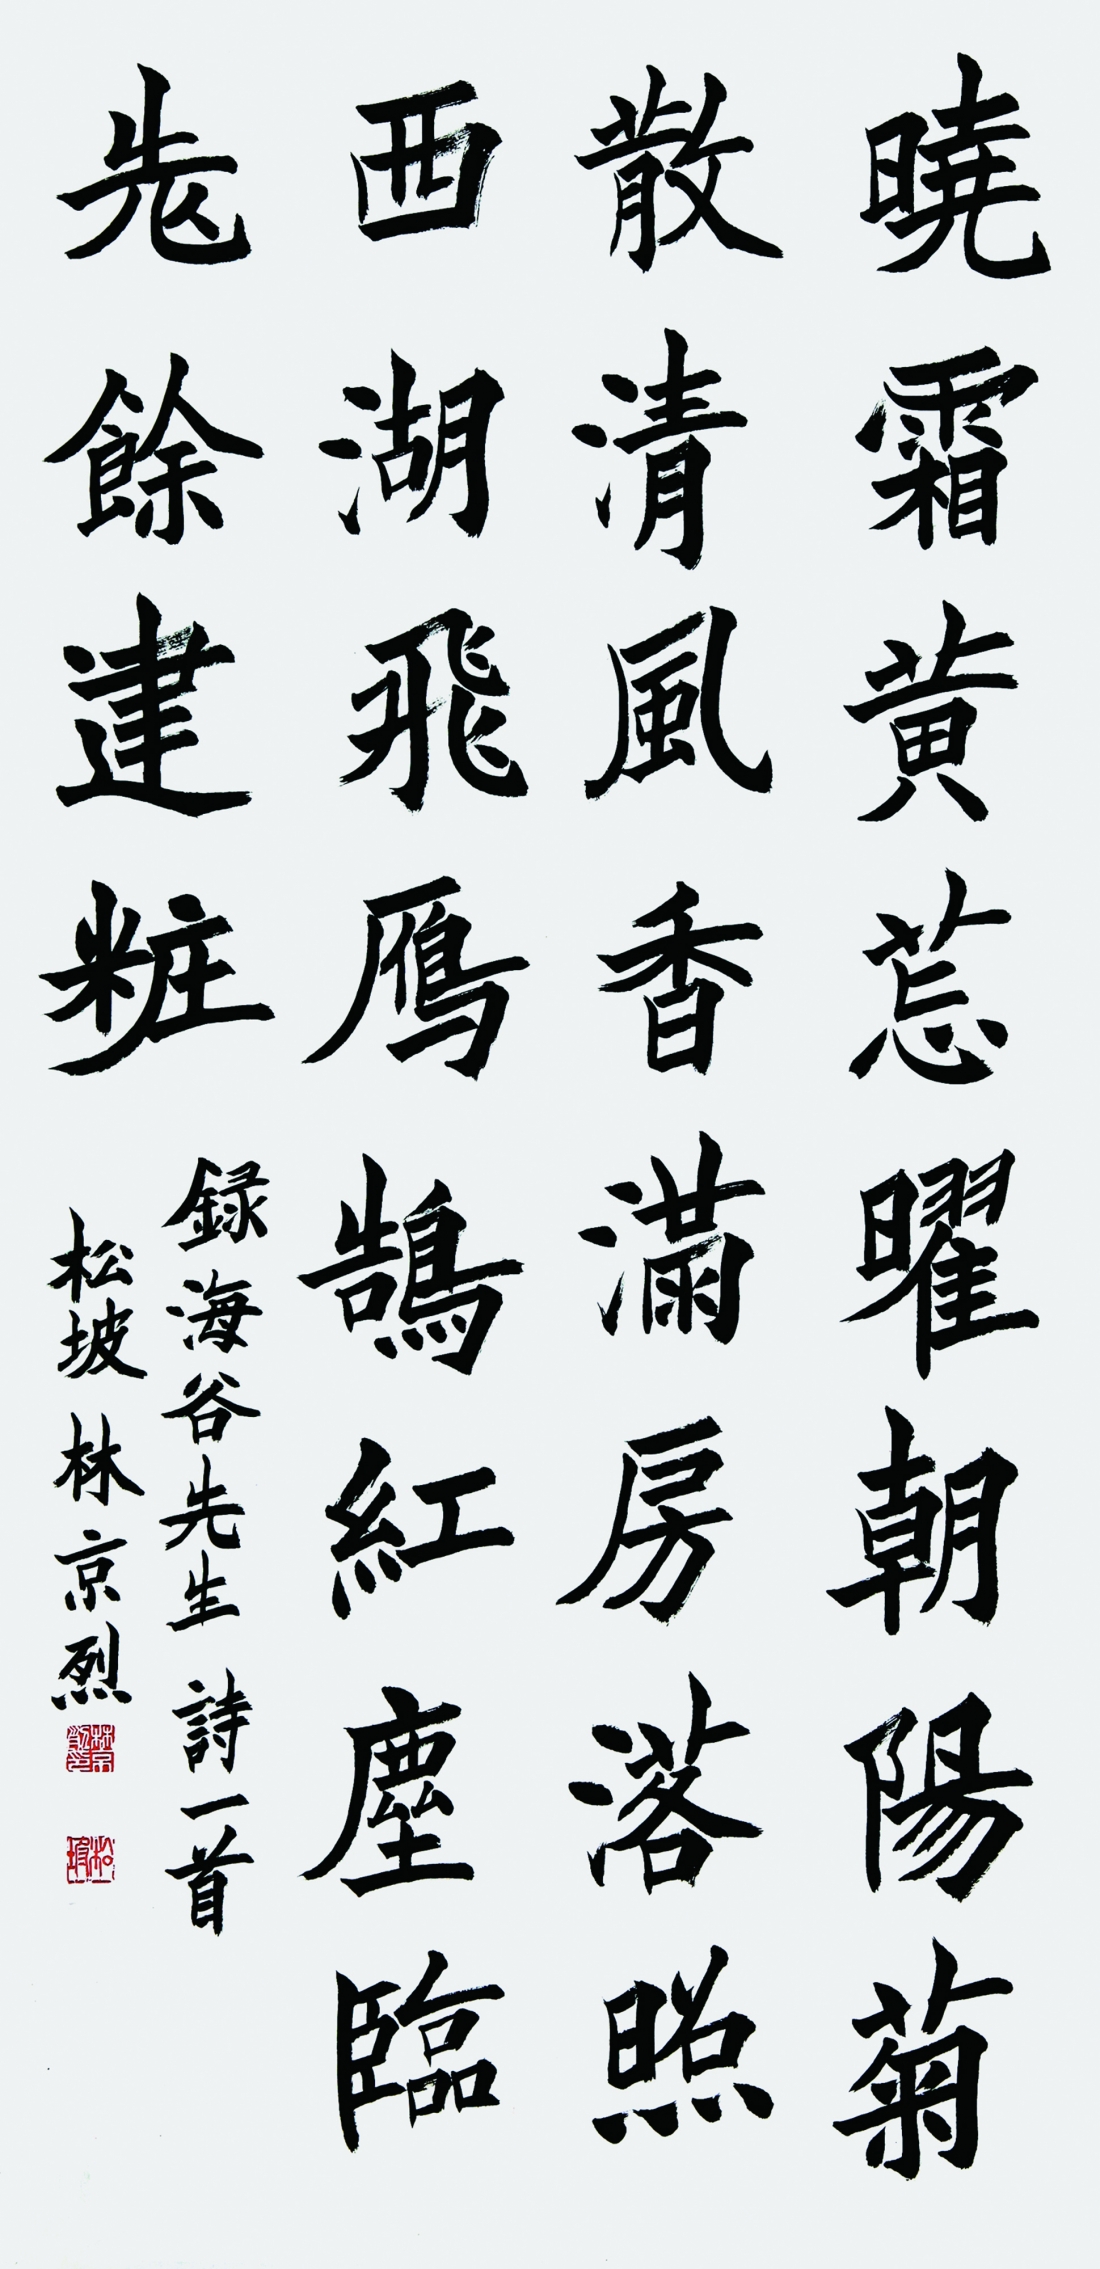 曉霜黃蕊曜朝陽菊
散清風香滿房落照
西湖飛鴈鵠紅塵臨
先餘建粧
録海谷先生詩一首
松坡林京烈